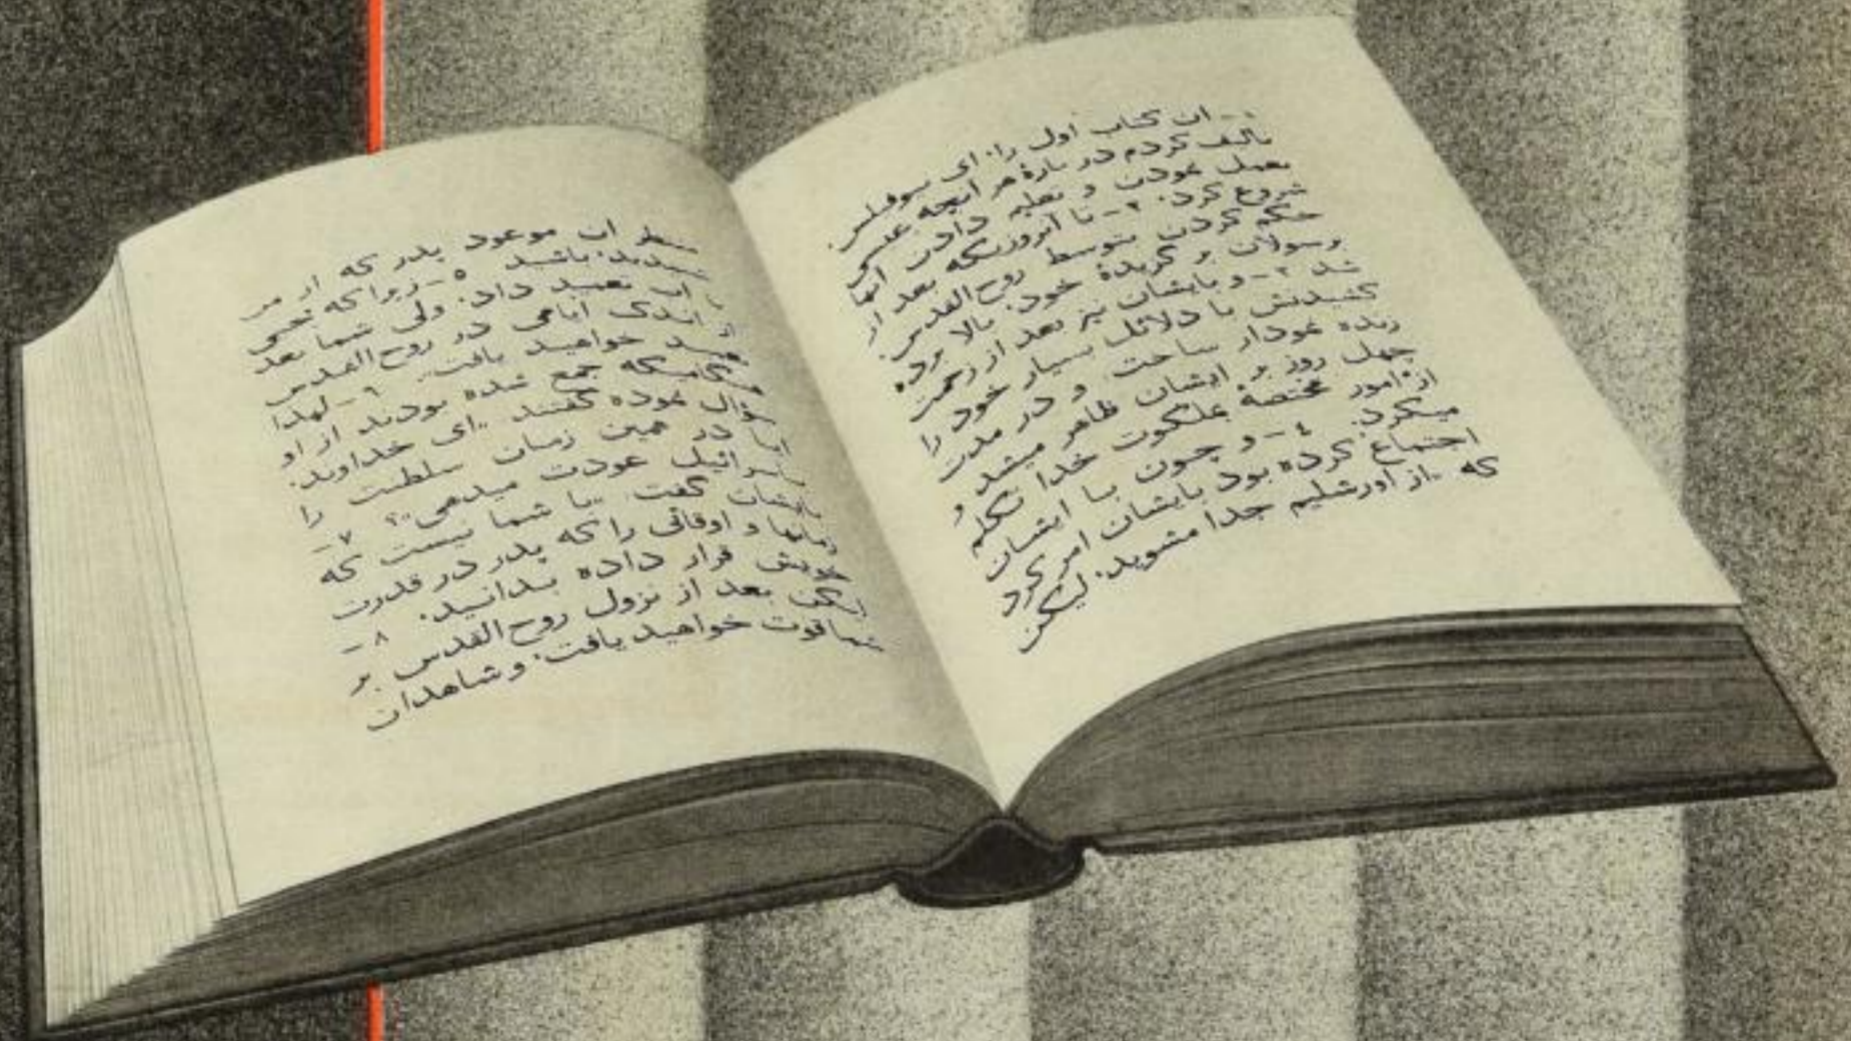 ۱- ان کتاب اول را. ای تیوفلس.
تالیف کردم در بارهٔ هر انچه عیسی
بعمل نمودن و تعلیم دادن انها
شروع کرد. ۲- تا انروزیکه بعد از
حکم کردن بتوسط روح القدس.
رسولان بر گزیدهٔ خود. بالا برده
شد ۳- و بایشان نیز بعد از زحمت
کشیدنش با دلائل بسیار خود را
زنده نمودار ساخت و در مدت
چهل روز بر ایشان ظاهر میشد و
از امور مختصهٔ بملکوت خدا تکلم
میکرد. ٤- و چون با ایشان
اجتماع کرده بود بایشان امر کرد
که "از اورشلیم جدا مشوید. لیکن
منتظر ان موعود پدر که از من
شنیدید. باشید ٥- زیرا که یحیی
با اب تعمید داد. ولی شما بعد
از اندک ایامی در روح القدس
تعمید خواهید یافت" ٦- لهذا
هنگامیکه جمع شده بودند از او
سؤال نموده گفتند "ای خداوند.
ایا در همین زمان سلطنت را
باسرائیل عودت میدهی"؟ ۷-
بایشان گفت "با شما نیست که
زمانها و اوقاتی را که پدر در قدرت
خویش قرار داده بدانید. ۸-
لیکن بعد از نزول روح القدس بر
شما قوت خواهید یافت. و شاهدان